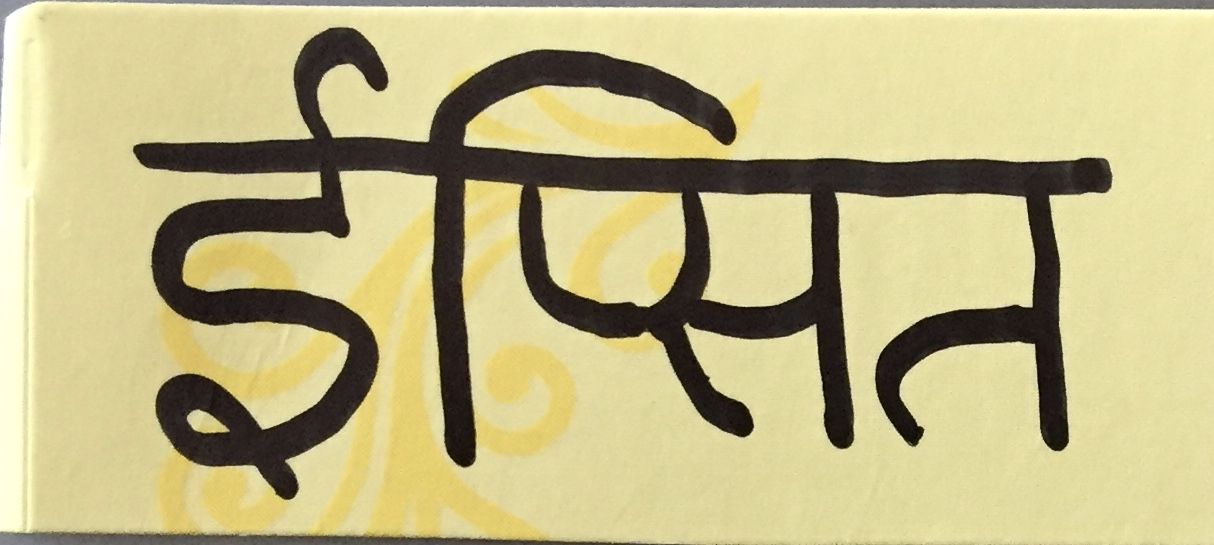 ईप्सित